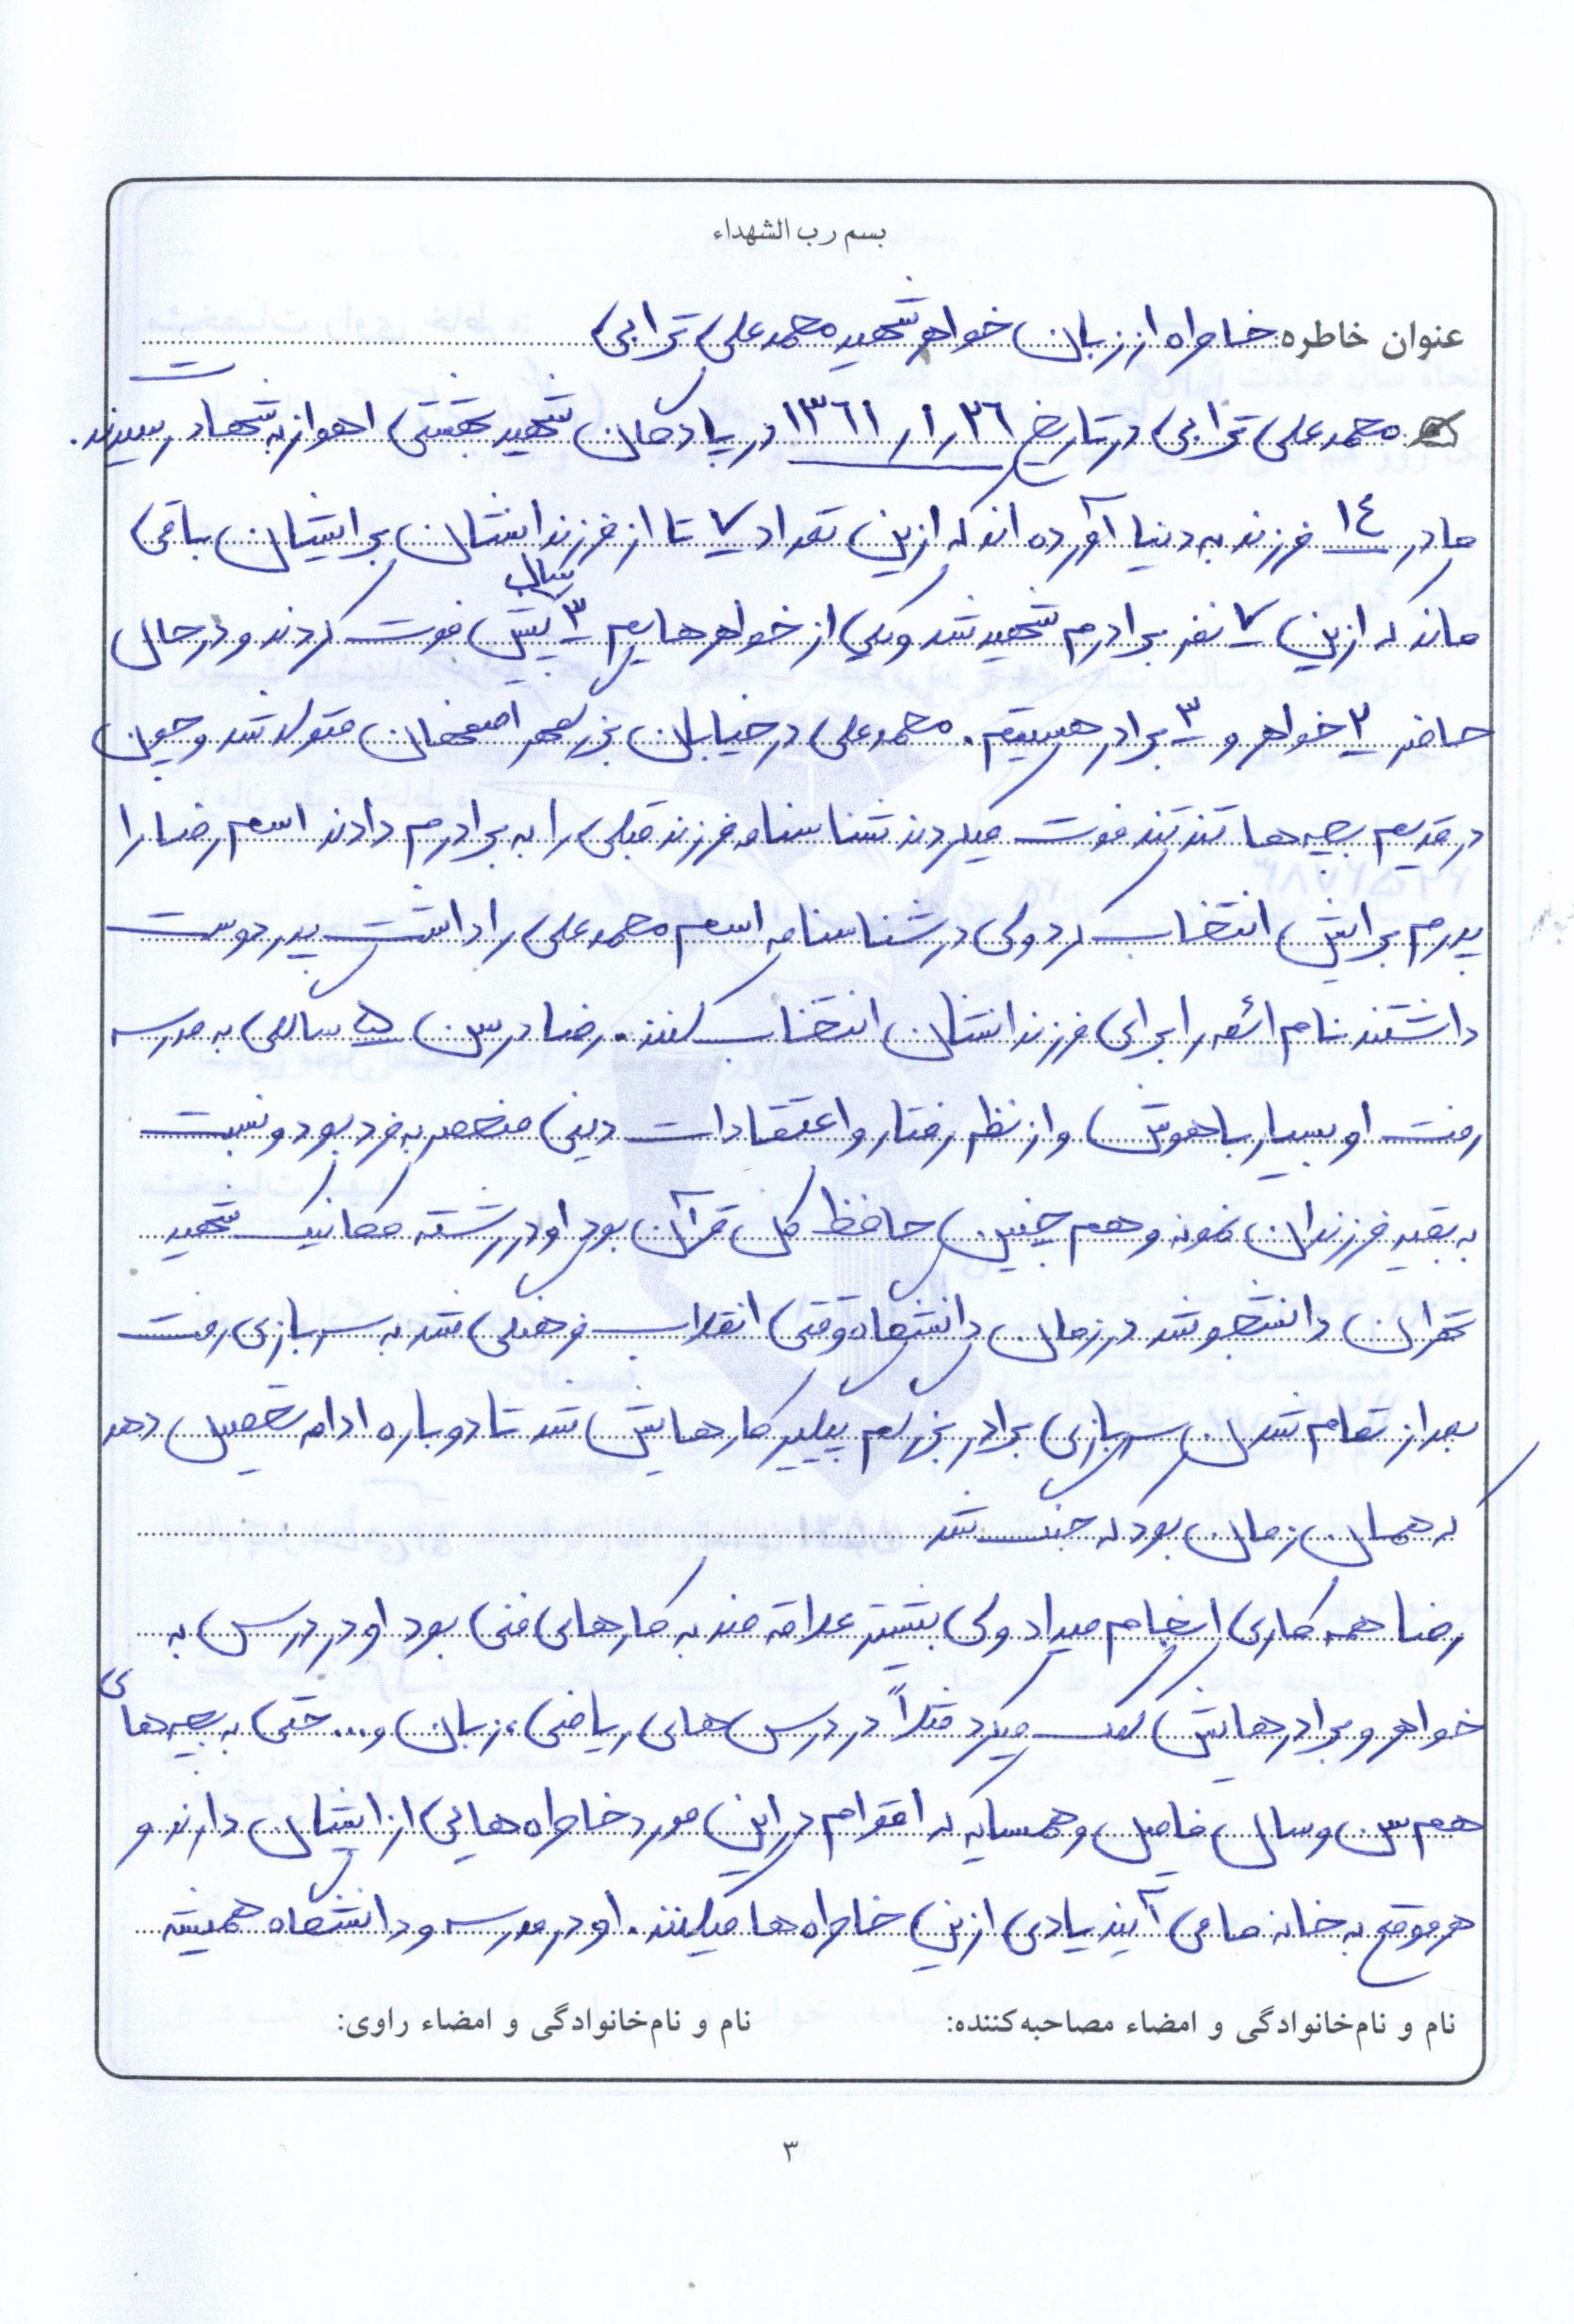 بسم رب الشهداء
عنوان خاطره: خاطره از زبان خواهر شهید محمدعلی ترابی
محمدعلی ترابی در تاریخ ۱۳۶۱/۱/۲۶ در پادگان شهید بهشتی اهواز به شهادت رسیدند.
مادر ۱۴ فرزند به دنیا آورده اند که ازین تعداد ۷ تا از فرزندانشان برایشان باقی
ماند که ازین ۷ نفر برادرم شهید شد و یکی از خواهرهایم ۳ سال پیش فوت کردند و در حال
حاضر ۲ خواهر و ۳ برادر هستیم. محمدعلی در خیابان بزرگمهر اصفهان متولد شد و چون
در قدیم بچه ها تند تند فوت میکردند شناسنامه فرزند قبلی را به برادرم دادند اسم رضا را
پدرم برایش انتخاب کرد ولی در شناسنامه اسم محمدعلی را داشت پدر دوست
داشتند نام ائمه را برای فرزندانشان انتخاب کنند. رضا در سن ۵ سالگی به مدرسه
رفت او بسیار باهوش و از نظر رفتار و اعتقادات دینی منحصر به فرد بود و نسبت
به بقیه فرزندان نمونه و هم چنین حافظ کل قرآن بود او در رشته مکانیک شهید
تهران دانشجو شد در زمان دانشگاه وقتی انقلاب فرهنگی شد به سربازی رفت
بعد از تمام شدن سربازی برادر بزرگم پیگیر کارهایش شد تا دوباره ادامه تحصیل دهد
که همان زمان بود که جنگ شد
رضا همه کاری انجام میداد ولی بیشتر علاقه مند به کارهای فنی بود او در درس به
خواهر و برادرهایش کمک میکرد مثلاً در درس های ریاضی، زبان و... حتی به بچه های
هم سن و سال فامیل و همسایه که اقوام در این مورد خاطره هایی از ایشان دارند و
هر موقع به خانه ما می آیند یادی ازین خاطره ها میکنند. او در مدرسه و دانشگاه همیشه
نام و نام‌خانوادگی و امضاء مصاحبه‌کننده: نام و نام‌خانوادگی و امضاء راوی:
۳